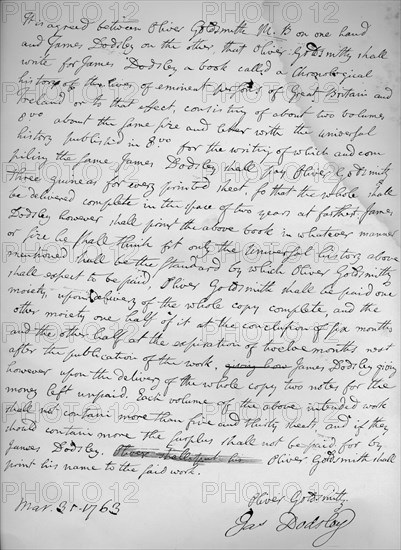 It is agreed between Oliver Goldsmith M. B on one hand
and James Dodsley on the other, that Oliver Goldsmith shall
write for James Dodsley a book called a chronological
history of the lives of eminent persons of Great Britain and
Ireland or to that effect, consisting of about two volumes
8vo about the same size and letter with the universal
history published in 8vo for the writing of which and com
piling the same James Dodsley shall pay Oliver Goldsmith
three guineas for every printed sheet, so that the whole shall
be delivered complete in the space of two years at farthest, James
Dodsley however shall print the above book in whatever manner
or size he shall think fit only the universal history above
mentioned shall be the Standard by which Oliver Goldsmith
shall expect to be paid, Oliver Goldsmith shall be paid one
moiety upon delivery of the whole copy complete, and the
other moiety one half of it at the conclusion of six months
and the other half at the expiration of twelve months next
after the publication of the work. James Dodsley giving
however upon the delivery of the whole copy two notes for the
money left unpaid. Each volume of the above intended work
shall not contain more than five and thirty sheets, and if they
should contain more the surplus shall not be paid for by
James Dodsley. Oliver Goldsmith shall
print his name to the said work.
Mar. 31. 1763
Oliver Goldsmith
Jas Dodsley